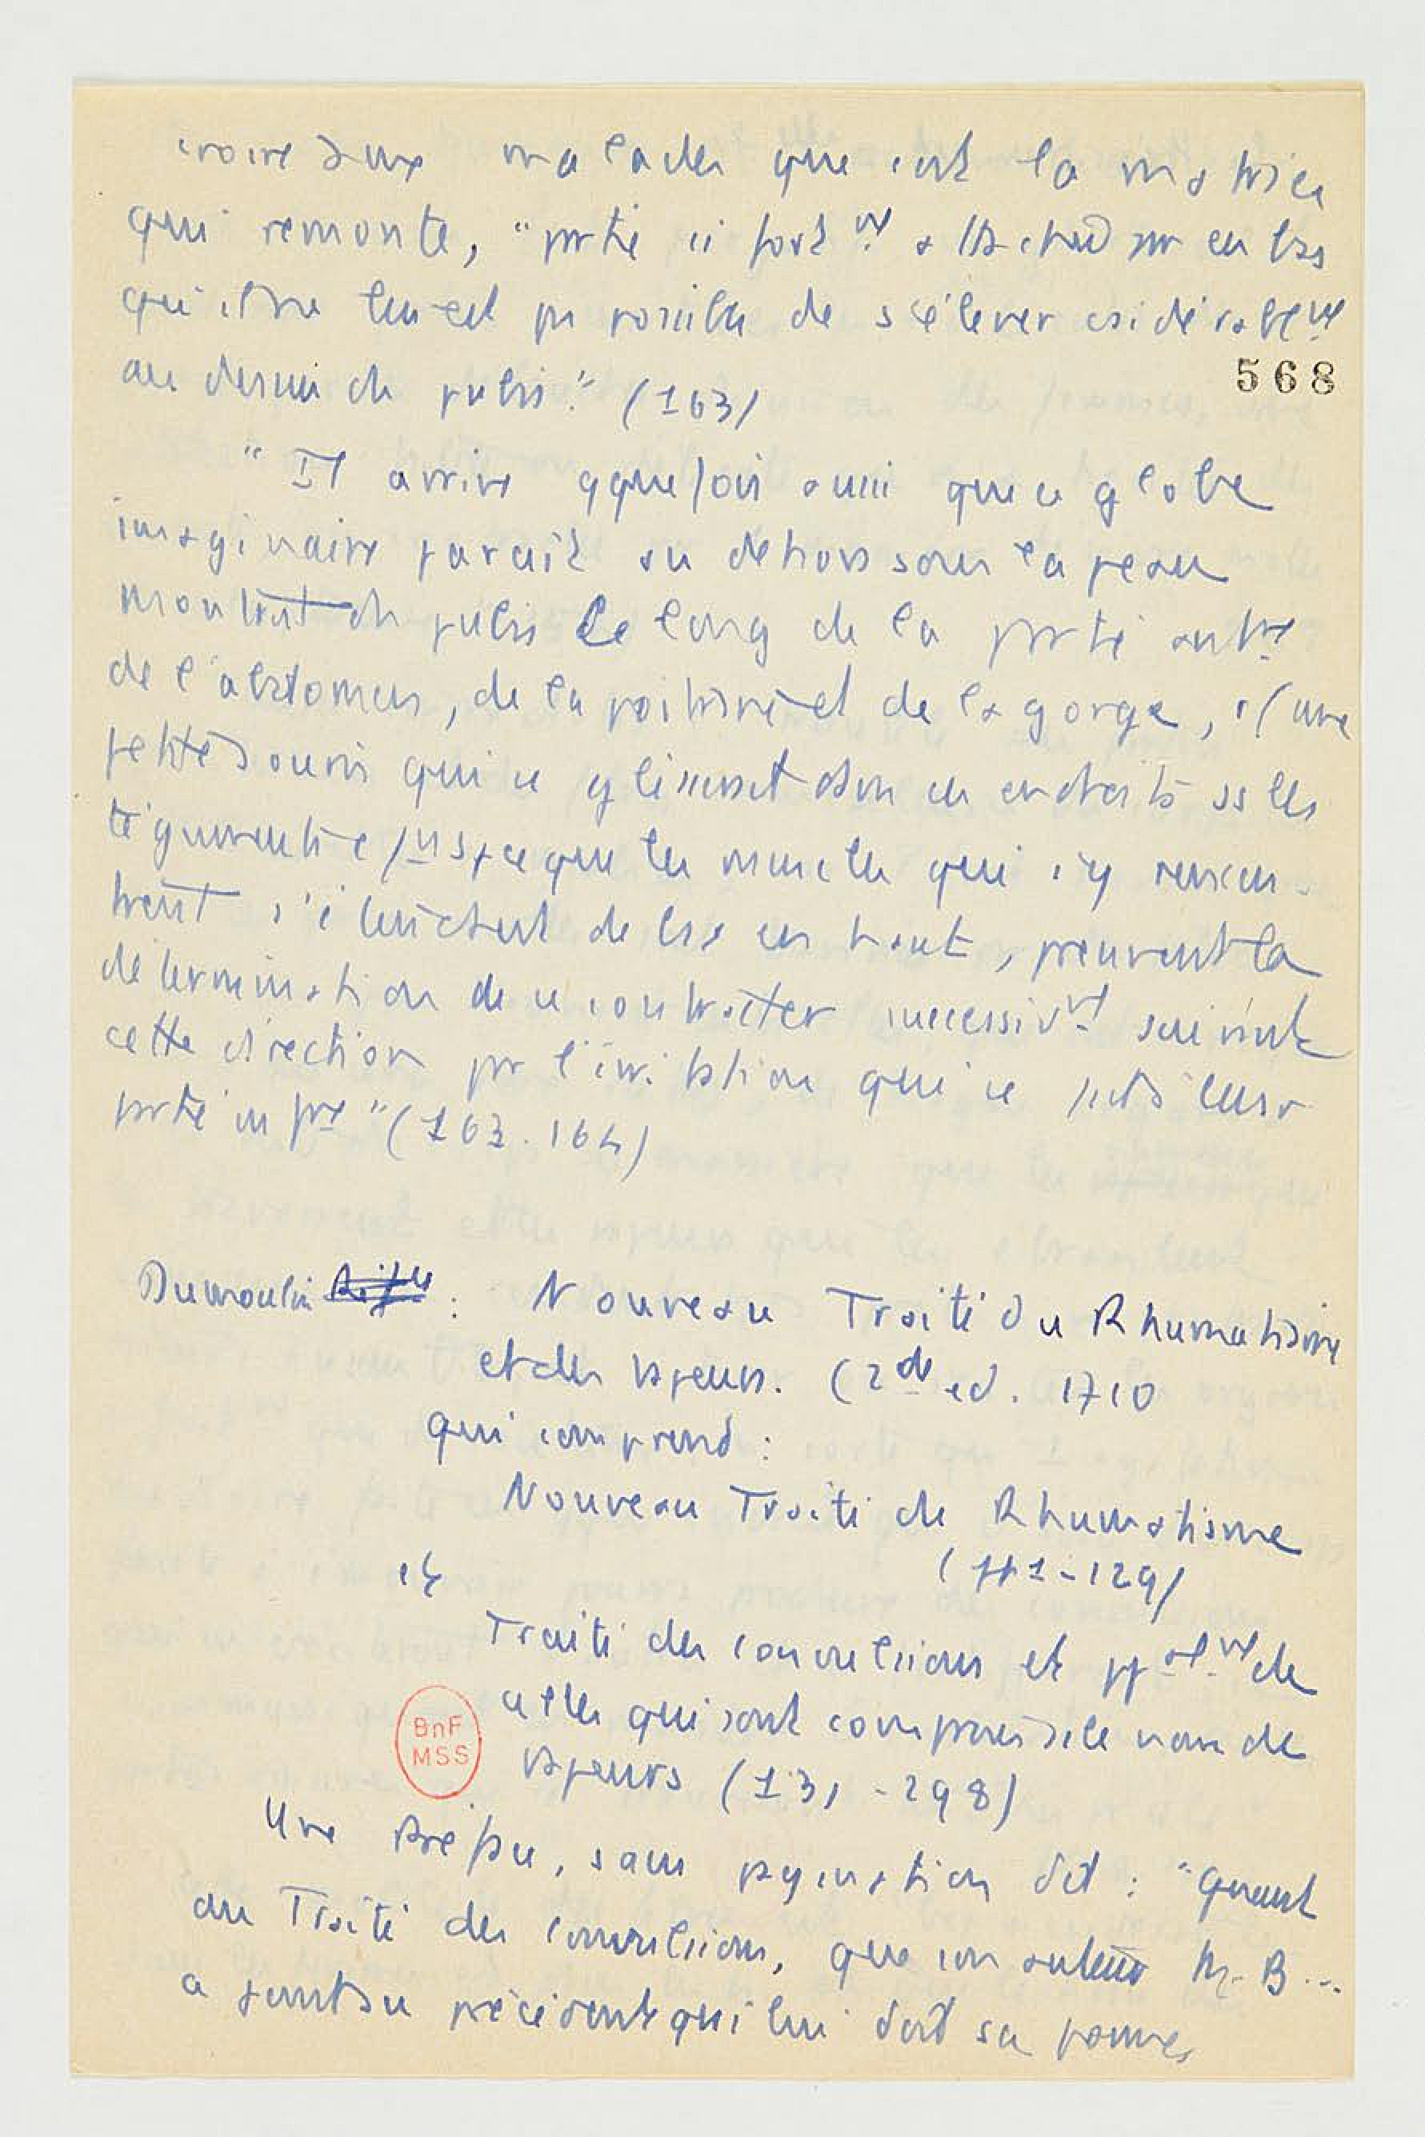 croire aux malades que c'est la matrice
qui remonte, "prtie si fortᵗ attachée par en bas
qu'il ne leur est pas possible de s'élever csidérablᵗ
au dessus du pubis." (163)
568
"Il arrive qquefois aussi que ce globe
imaginaire paraît au dehors sous la peau
montant du pubis le long de la prtie antʳᵉ
de l'abdomen, de la poitrine et de la gorge, c/ une
petite souris qui se glisserait dans ces endroits ss les
téguments e jusqu'à ce que les muscles qui s'y rencon-
trent de bas en haut, prennent la
détermination de se contracter successivᵗ suivant
cette direction pr l'irritation qui se fait à leur
prtie infʳᵉ" (163-164)
Dumoulin : Nouveau Traité du Rhumatisme
et des vapeurs. (2de ed. 1710
qui comprend :
Nouveau Traité du Rhumatisme
(pp 1-129)
et
Traité des convulsions et ppalᵗ de
celles qui sont comprises s/s le nom de
vapeurs (131-298)
BnF
MSS
Une Préface, sans pagination dit : "Quant
au Traité des Convulsions, que son auteur Mr B...
a joint au précédent qui lui doit sa